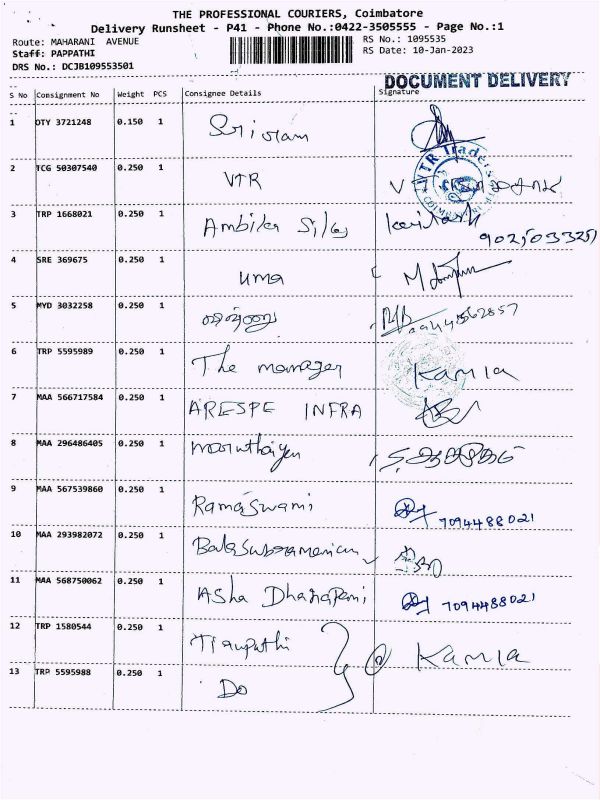 THE PROFESSIONAL COURIERS, Coimbatore
Delivery Runsheet - P41 - Phone No.:0422-3505555 - Page No.:1
Route: MAHARANI AVENUE
Staff: PAPPATHI
DRS No.: DCJB109553501
RS No.: 1095535
RS Date: 10-Jan-2023
DOCUMENT DELIVERY
S No Consignment No Weight PCS Consignee Details Signature
1 OTY 3721248 0.150 1 Sriram
2 TCG 50307540 0.250 1 VTR
VTR Traders
3 TRP 1668021 0.250 1 Ambika Silks
4 SRE 369675 0.250 1 uma
5 MYD 3032258 0.250 1
6 TRP 5595989 0.250 1 The manager Kamla
7 MAA 566717584 0.250 1 ARESPE INFRA
8 MAA 296486405 0.250 1
9 MAA 567539860 0.250 1 RamaSwami 7094488021
10 MAA 293982072 0.250 1 BalaSubramanian
11 MAA 568750062 0.250 1 Asha Dhanapani 7094488021
12 TRP 1580544 0.250 1 Tirupathi Kamla
13 TRP 5595988 0.250 1 Do